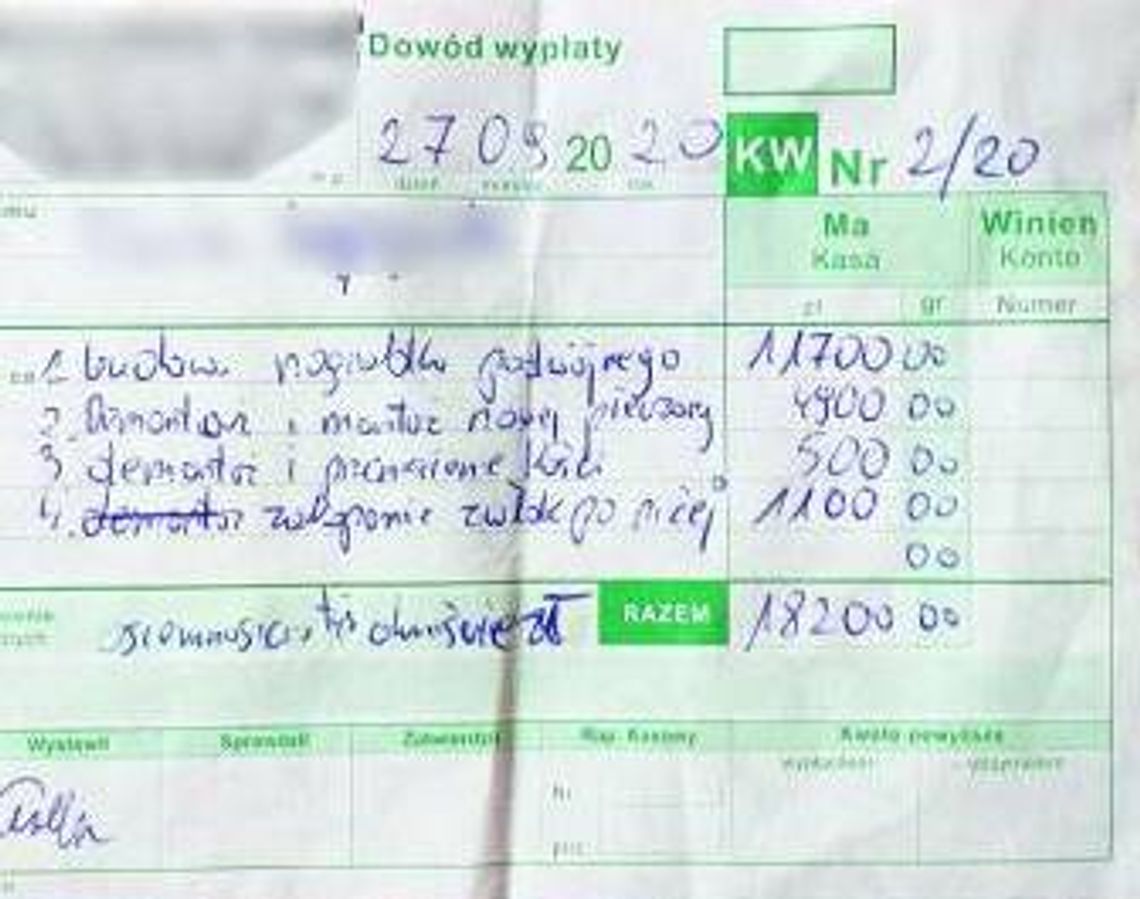 Dowód wypłaty
27 09 20 20 KW Nr 2/20
Ma Winien
Kasa Konto
zł gr Numer
1. budowa nagrobka podwójnego 11700 00
2. Demontaż i montaż nowej pieczary 4900 00
3. demontaż i 500 00
4. zwłok po niżej 1100 00
00
tyś dwieście zł RAZEM 18200 00
Wystawił Sprawdził Zatwierdził Rap. Kasowy Kwotę powyższą
Nr
poz.